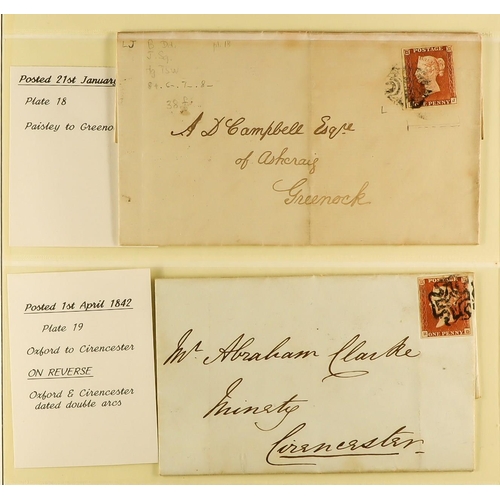 Posted 21st January
Plate 18
Paisley to Greeno
LJ
38
L
POSTAGE
ONE PENNY
A D Campbell Esqre
of Ashcraig
Greenock
Posted 1st April 1842
Plate 19
Oxford to Cirencester
ON REVERSE
Oxford & Cirencester
dated double arcs
ONE PENNY
Mr. Abraham Clarke
Minety
Cirencester